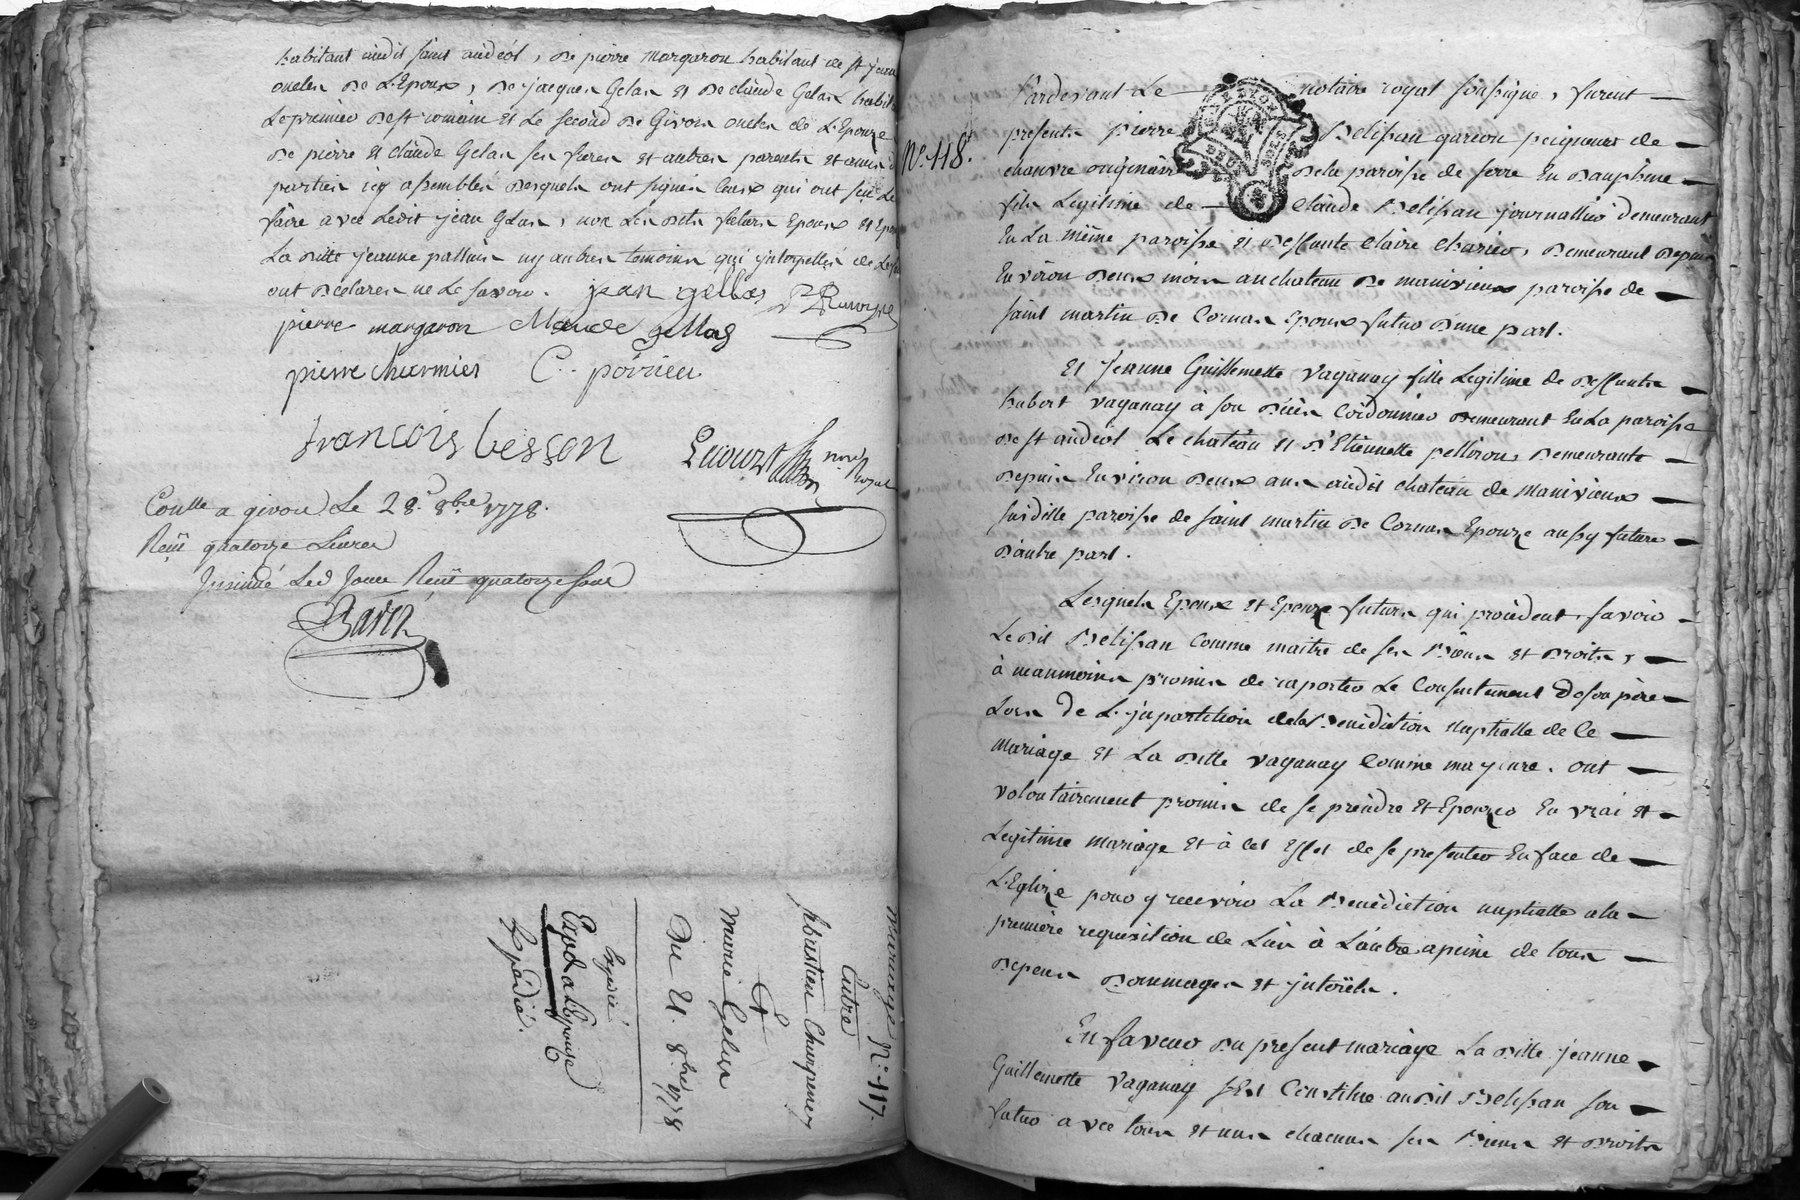 habitant audit saint andéol, de pierre margaron habitant de st jean
oncles de L'Epoux, de jacques Gelas et de claude Gelas habit
Le premier de st romain et Le second de Givors oncles de L'Epouze
de pierre et claude Gelas ses freres et autres parents et amis d
parties icy assemblés desquels ont signés Ceux qui ont sçu Le
faire avec Ledit jean Gelas, non Les dits futurs Epoux et Epou
La ditte jeanne ny autres temoins qui interpellés de Le
ont declarés ne Le savoir. jean gellas
pierre margaron Claude gellas
pierre charmier C. poirieu
francois besson
Lecourt nre Royal
Conlle a givors Le 28e 8bre 1778.
Reçu quatorze Livres
Insinué Led Jour Reçu quatorze sous
Mariage N. 117.
Entre
Sebastien Charpenay
Et
Marie Gelas
Du 21. 8bre 1778
Expedié
Exped a L'Epouse
Expédié.
N°. 118.
Pardevant Le notaire royal soussigné, furent
presents pierre Belissan garcon peigneur de
chanvre originaire de la paroisse de serre En Dauphiné
fils Legitime de Claude Belissan journallier demeurant
En La même paroisse et deffunte Claire Charier, demeurant depuis
Environ deux mois au chateau de manivieux paroisse de
saint martin de Cornas Epoux futur d'une part.
Et Jeanne Guillemette Vaganay fille Legitime de deffunts
hubert Vaganay à son vivant Cordonnier demeurant En La paroisse
de st andéol Le chateau et d'Etiennette pelliron, demeurante
depuis Environ deux ans audit chateau de Manivieux
susditte paroisse de saint martin de Cornas Epouze aussy future
d'autre part.
Lesquels Epoux et Epouze futurs qui procédent, savoir
Ledit Belissan Comme maitre de ses Biens et droits,
à neanmoins promis de raporter Le Consentement de son père
Lors de L'impartition de la Benediction nuptialle de Ce
mariage et La ditte Vaganay Comme majeure. ont
volontairement promis de se prendre et Epouzer En vrai et
Legitime mariage et à cet effet de se presenter En face de
L'Eglize pour y recevoir La Benédiction nuptialle a la
premiere requisition de L'un à L'autre a peine de tous
depens dommages et intérêts.
En faveur du present mariage La ditte jeanne
Guillemette Vaganay s'Est Constitué audit Belissan son
futur avec tous et uns chacuns ses Biens et droits